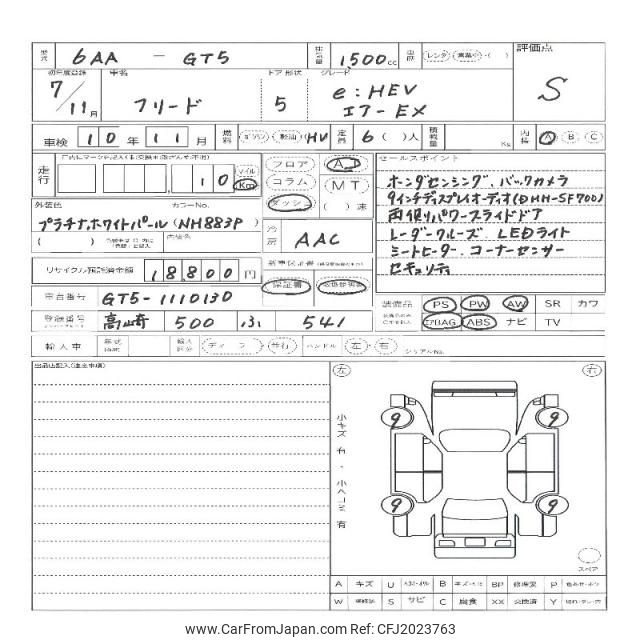 型式 6AA - GT5 排気量 1500cc 車歴 レンタ 評価点
初年度登録 車名 ドア 形状 グレード
7/11月 フリード 5 e:HEV エアーEX S
車検 10年11月 燃料 ガソリン 軽油 HV 定員 6( )人 積載量 Kg 内装 A B C
走行 10 マイル Km フロア コラム ダッシュ AT MT ( )速
セールスポイント
ホンダセンシング、バックカメラ
9インチディスプレイオーディオ(DMH-SF700)
両側パワースライドドア
レーダークルーズ、LEDライト
シートヒーター、コーナーセンサー
セキュリティ
外装色 カラーNo.
プラチナホワイトパール(NH883P)
( ) 内装色
冷房 AAC
リサイクル預託済金額 18,800円
新車保証書 保証書
車台番号 GT5-1110130
装備品 PS PW AW SR カワ
エアBAG ABS ナビ TV
登録番号 高崎 500 ふ 541
輸入車 年式 輸入区分 ディーラー 並行 ハンドル 左・右 シリアルNo.
出品店記入(注意事項)
左 右
小キズ有・小ヘコミ有
9 9
9 9
スペア
A キズ U B BP 修理跡 P
W S サビ C 腐食 XX 交換済 Y
www.CarFromJapan.com - Photo ID: CFJ2023763